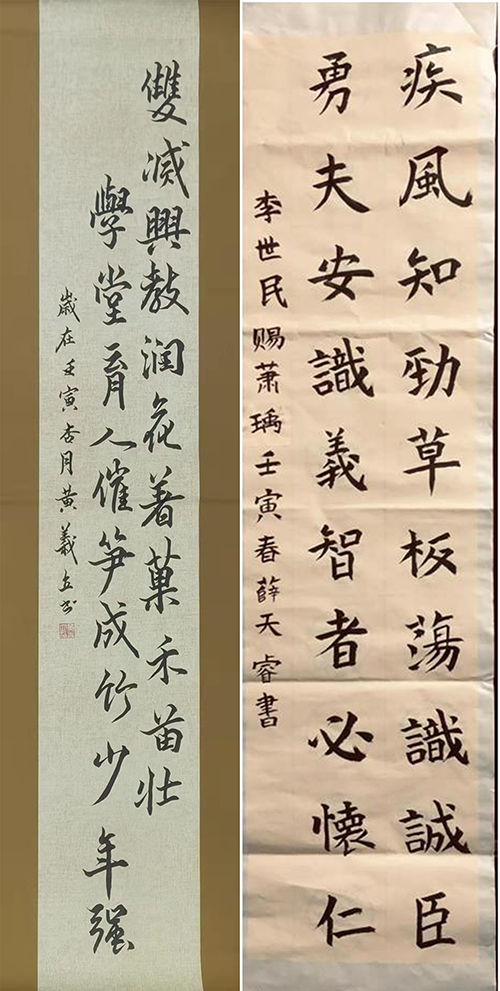 雙减興教润花着菓禾苗壮
學堂育人催笋成竹少年强
歲在壬寅杏月黄義立书
疾風知勁草板蕩識誠臣
勇夫安識義智者必懷仁
李世民赐萧瑀壬寅春薛天睿書